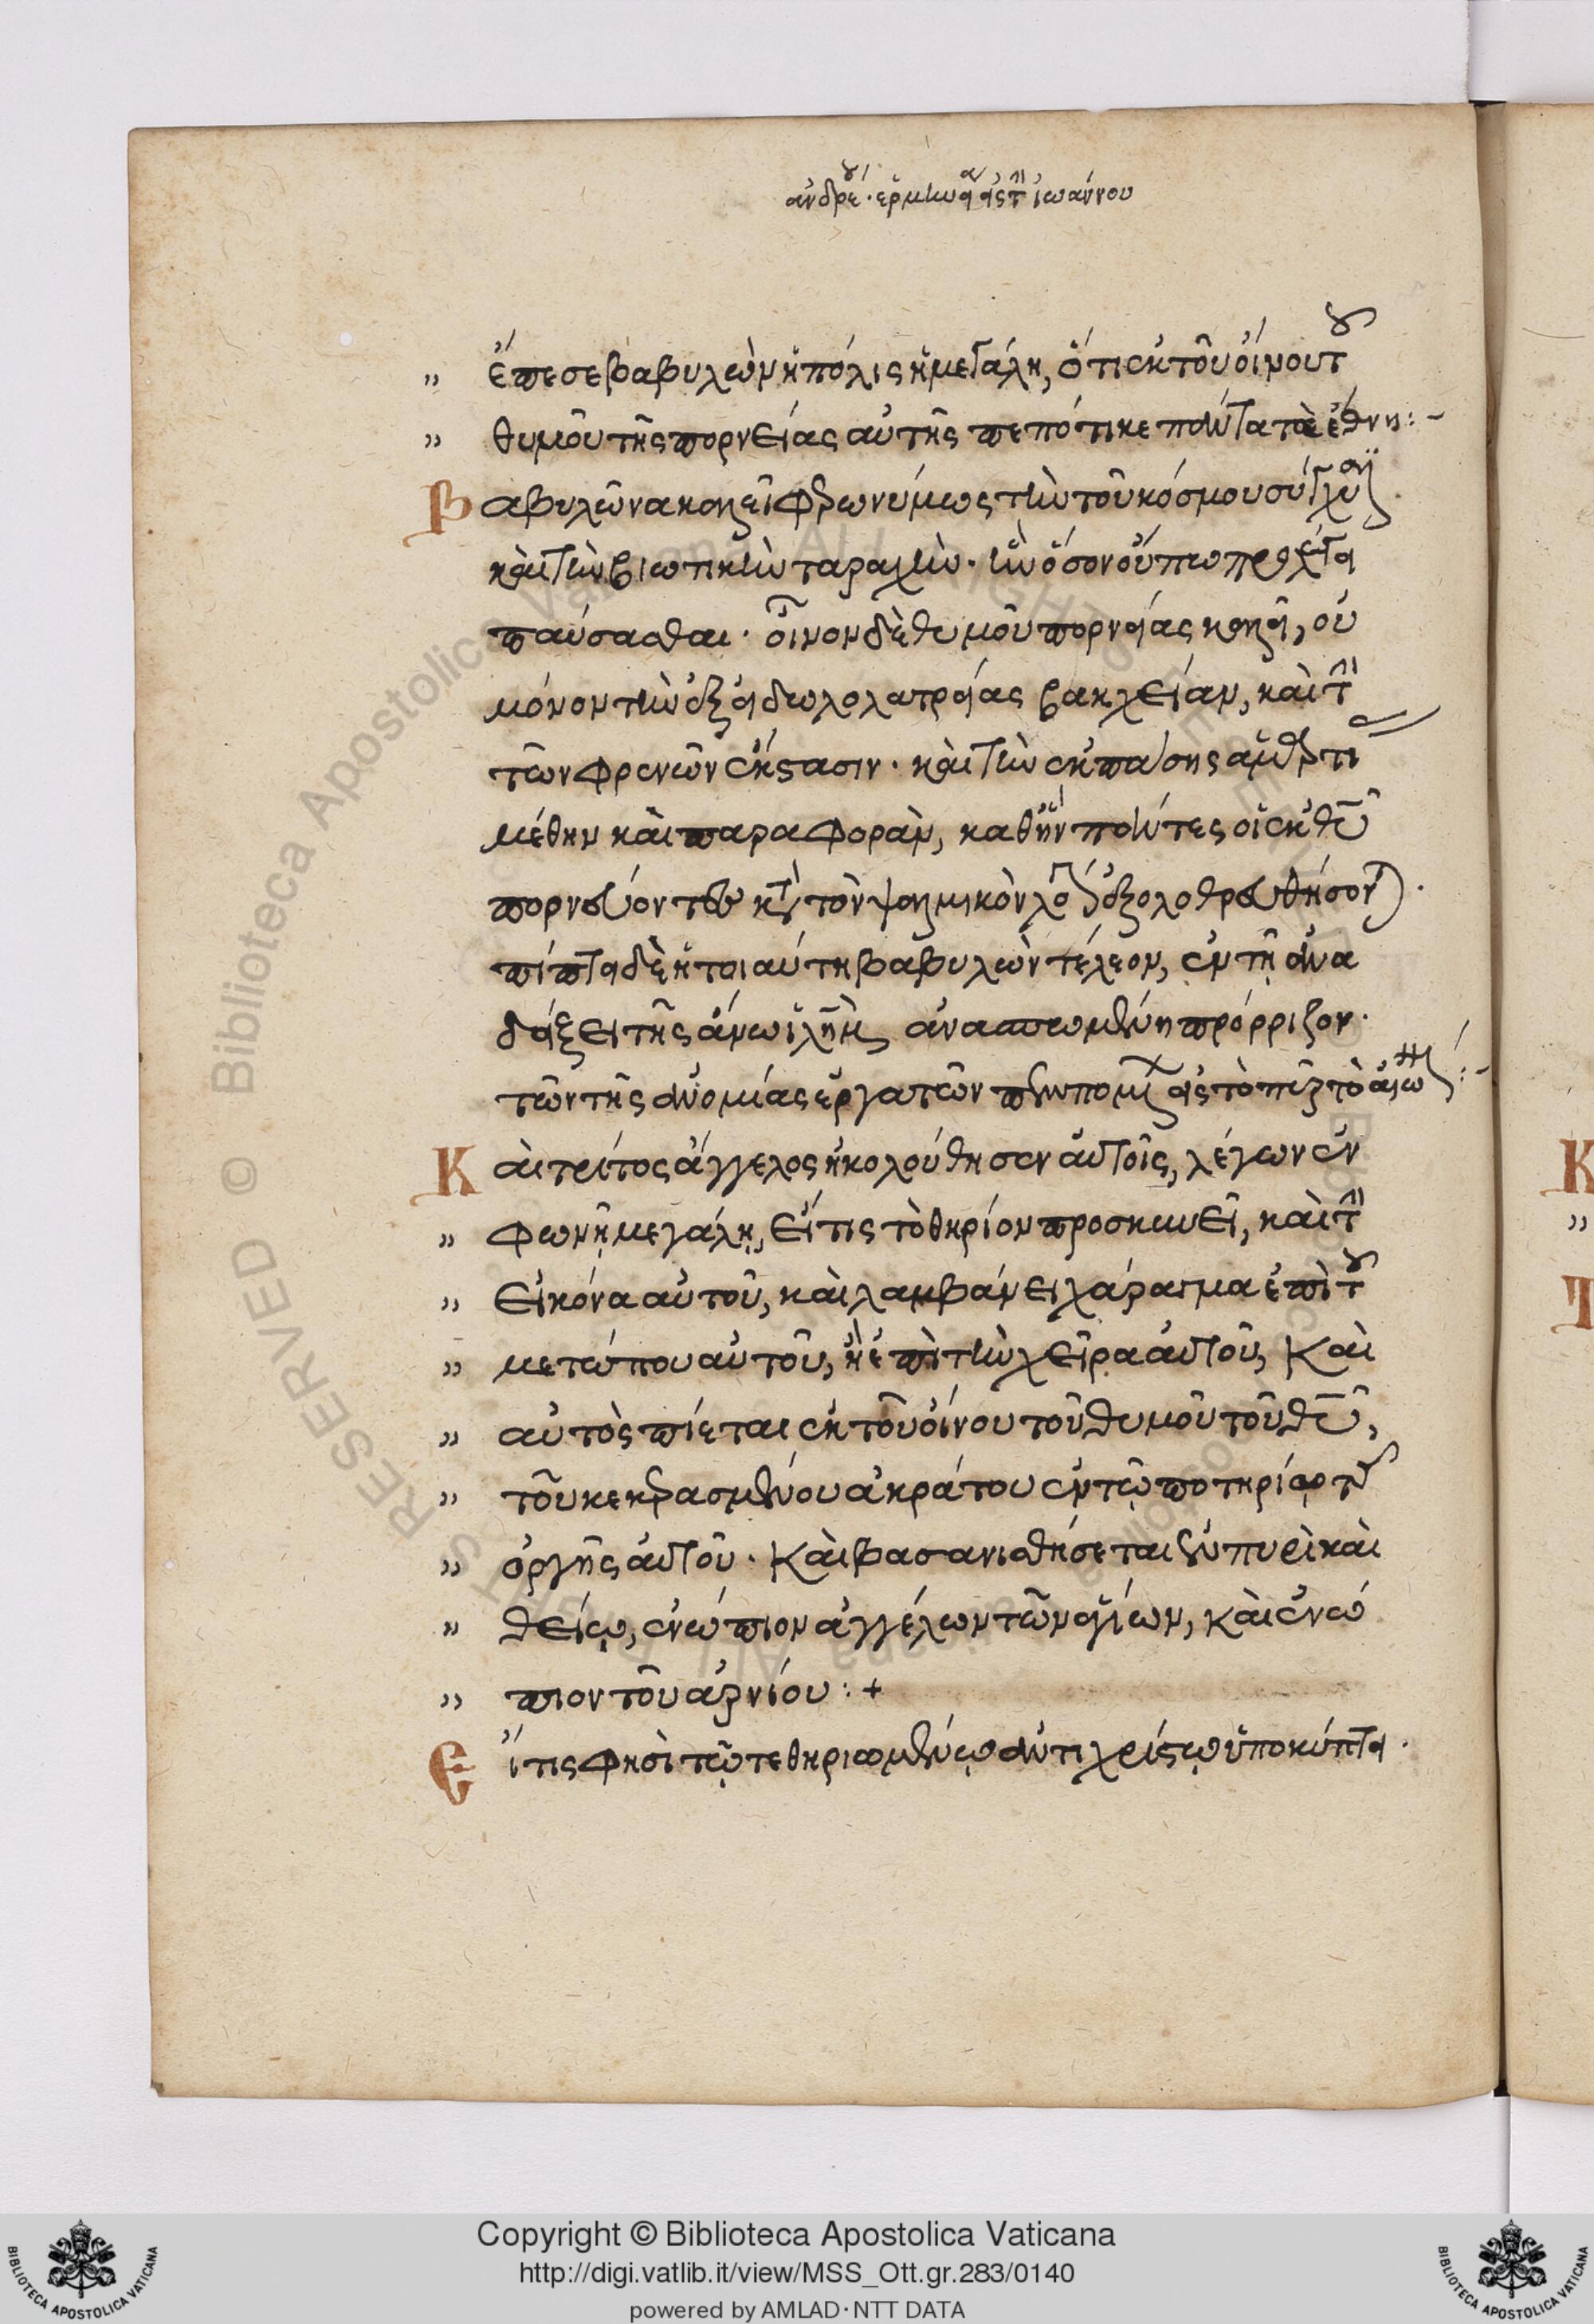 ἀνδρέου ἑρμηνεία εἰς τὴν ἰωάννου
„ ἔπεσε βαβυλὼν ἡ πόλις ἡ μεγάλη, ὅτι ἐκ τοῦ οἴνου τοῦ
„ θυμοῦ τῆς πορνείας αὐτῆς πεπότικε πάντα τὰ ἔθνη :-
Βαβυλῶνα καλεῖ φερωνύμως τὴν τοῦ κόσμου σύγχυσιν.
καὶ τὴν βιωτικὴν ταραχὴν. ἣν ὅσον οὔπω προλέγει
παύσασθαι. οἶνον δὲ θυμοῦ πορνείας καλεῖ, οὐ
μόνον τὴν ἐξ εἰδωλολατρείας βακχείαν, καὶ τὴν
τῶν φρενῶν ἔκστασιν. καὶ τὴν ἐκ πάσης ἁμαρτίας
μέθην καὶ παραφορὰν, καθ' ἣν πάντες οἱ ἐκ θυ
πορνεύοντες κατὰ τὸν ψαλμικὸν λόγον ἐξολοθρευθήσονται.
πίπτει δὲ ἡ τοιαύτη βαβυλὼν τέλεον, ἐν τῇ ἀνα
δείξει τῆς ἄνω ἱλὴμ ἀνασπωμένη πρόρριζον.
τῶν τῆς ἀνομίας ἐργατῶν πεμπομένων εἰς τὸ πῦρ τὸ αἰώνιον :-
Καὶ τρίτος ἄγγελος ἠκολούθησεν αὐτοῖς, λέγων ἐν
„ φωνῇ μεγάλῃ, εἴ τις τὸ θηρίον προσκυνεῖ, καὶ τὴν
„ εἰκόνα αὐτοῦ, καὶ λαμβάνει χάραγμα ἐπὶ τοῦ
„ μετώπου αὐτοῦ, ἢ ἐπὶ τὴν χεῖρα αὐτοῦ, Καὶ
„ αὐτὸς πίεται ἐκ τοῦ οἴνου τοῦ θυμοῦ τοῦ θυ,
„ τοῦ κεκερασμένου ἀκράτου ἐν τῷ ποτηρίῳ τῆς
„ ὀργῆς αὐτοῦ. Καὶ βασανισθήσεται ἐν πυρὶ καὶ
„ θείῳ, ἐνώπιον ἀγγέλων τῶν ἁγίων, καὶ ἐνώ
„ πιον τοῦ ἀρνίου : +
Εἴ τις φησὶ τῷ τε θηριομένῳ ἀντιχρίστῳ ὑποκύπτει.
© Biblioteca Apostolica Vaticana ALL RIGHTS RESERVED
Copyright © Biblioteca Apostolica Vaticana
http://digi.vatlib.it/view/MSS_Ott.gr.283/0140
powered by AMLAD · NTT DATA
BIBLIOTECA APOSTOLICA VATICANA
BIBLIOTECA APOSTOLICA VATICANA